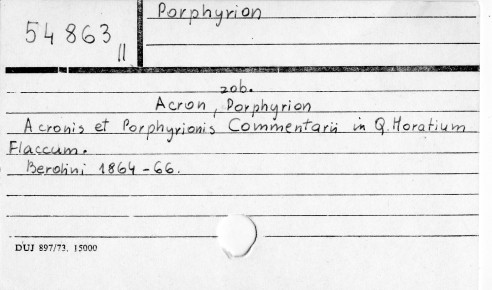 Porphyrion
54 863
II
zob.
Acron, Porphyrion
Acronis et Porphyrionis Commentarii in Q. Horatium
Flaccum.
Berolini 1864-66.
DUJ 897/73. 15000